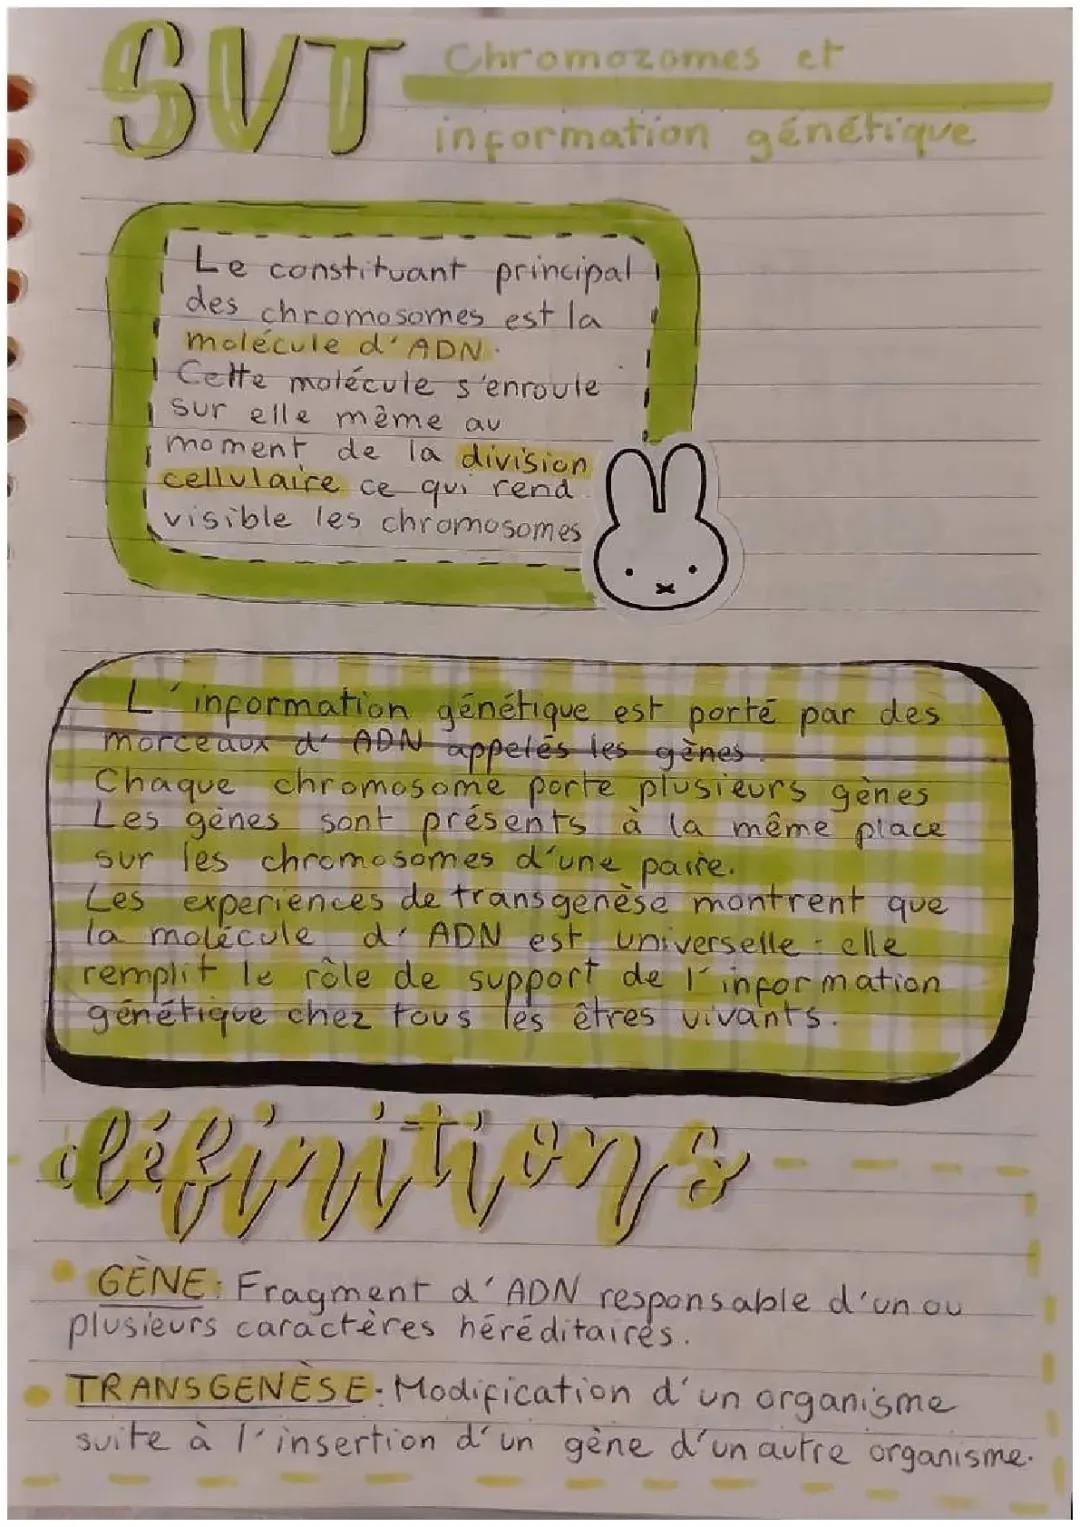 SVT Chromozomes et
information génétique
Le constituant principal
des chromosomes est la
molécule d'ADN.
Cette molécule s'enroule
sur elle même au
moment de la division
cellulaire ce qui rend
visible les chromosomes
L'information génétique est porté par des
morceaux d'ADN appelés les gènes.
Chaque chromosome porte plusieurs gènes
Les gènes sont présents à la même place
sur les chromosomes d'une paire.
Les experiences de transgenèse montrent que
la molécule d'ADN est universelle : elle
remplit le rôle de support de l'information
génétique chez tous les êtres vivants.
définitions
GÈNE: Fragment d'ADN responsable d'un ou
plusieurs caractères héréditaires.
TRANSGENÈSE: Modification d'un organisme
suite à l'insertion d'un gène d'un autre organisme.